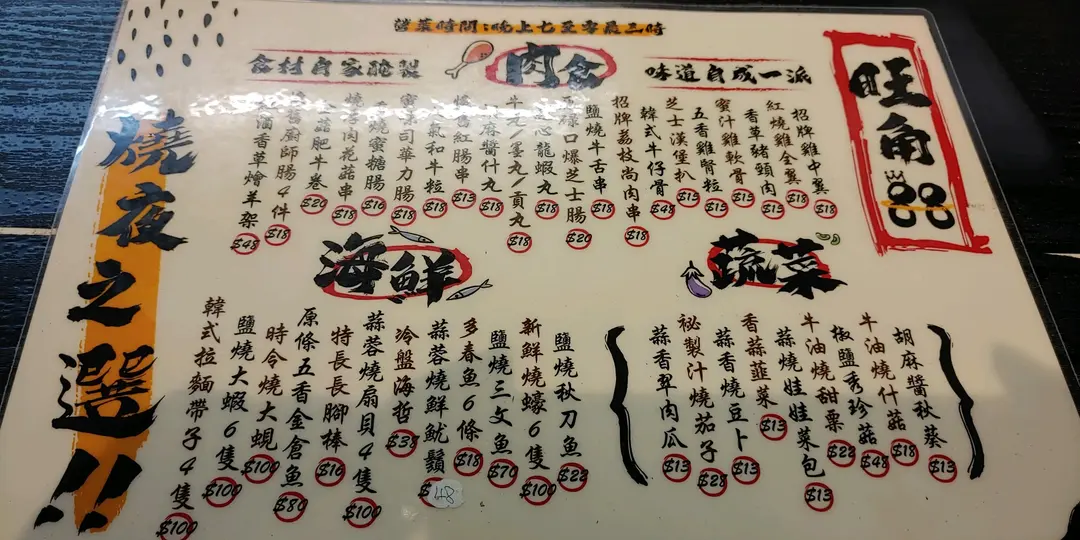 時間:晚上七至零晨三時
旺角
燒夜之選!!
肉食
味道自成一派
食材自家醃製
招牌雞中翼 $18
紅燒雞全翼 $18
香草豬頸肉 $13
蜜汁雞軟骨 $13
五香雞腎粒 $13
芝士漢堡扒 $13
韓式牛仔骨 $48
招牌荔枝尚肉串 $18
鹽燒牛舌串 $18
碌口爆芝士腸 $20
心龍蝦丸 $18
牛丸/墨丸/貢丸 $18
麻醬什丸 $18
紅腸串 $18
人氣和牛粒 $18
司華力腸 $18
燒蜜糖腸 $16
肉花菇串 $18
菇肥牛卷 $20
廚師腸4件 $18
酒香草燴羊架 $48
蔬菜
胡麻醬秋葵 $13
牛油燒什菇 $18
椒鹽秀珍菇 $48
牛油燒甜粟 $22
蒜燒娃娃菜包 $13
香蒜韮菜 $13
蒜香燒豆卜 $13
祕製汁燒茄子 $28
蒜香翠肉瓜 $13
海鮮
鹽燒秋刀魚 $22
新鮮燒蠔6隻 $100
鹽燒三文魚 $70
多春魚6條 $18
蒜蓉燒鮮魷鬚 $48
冷盤海哲 $38
蒜蓉燒扇貝4隻 $100
特長長腳棒 $16
原條五香金倉魚 $80
時令燒大蜆 $100
鹽燒大蝦6隻 $100
韓式拉麵帶子4隻 $100